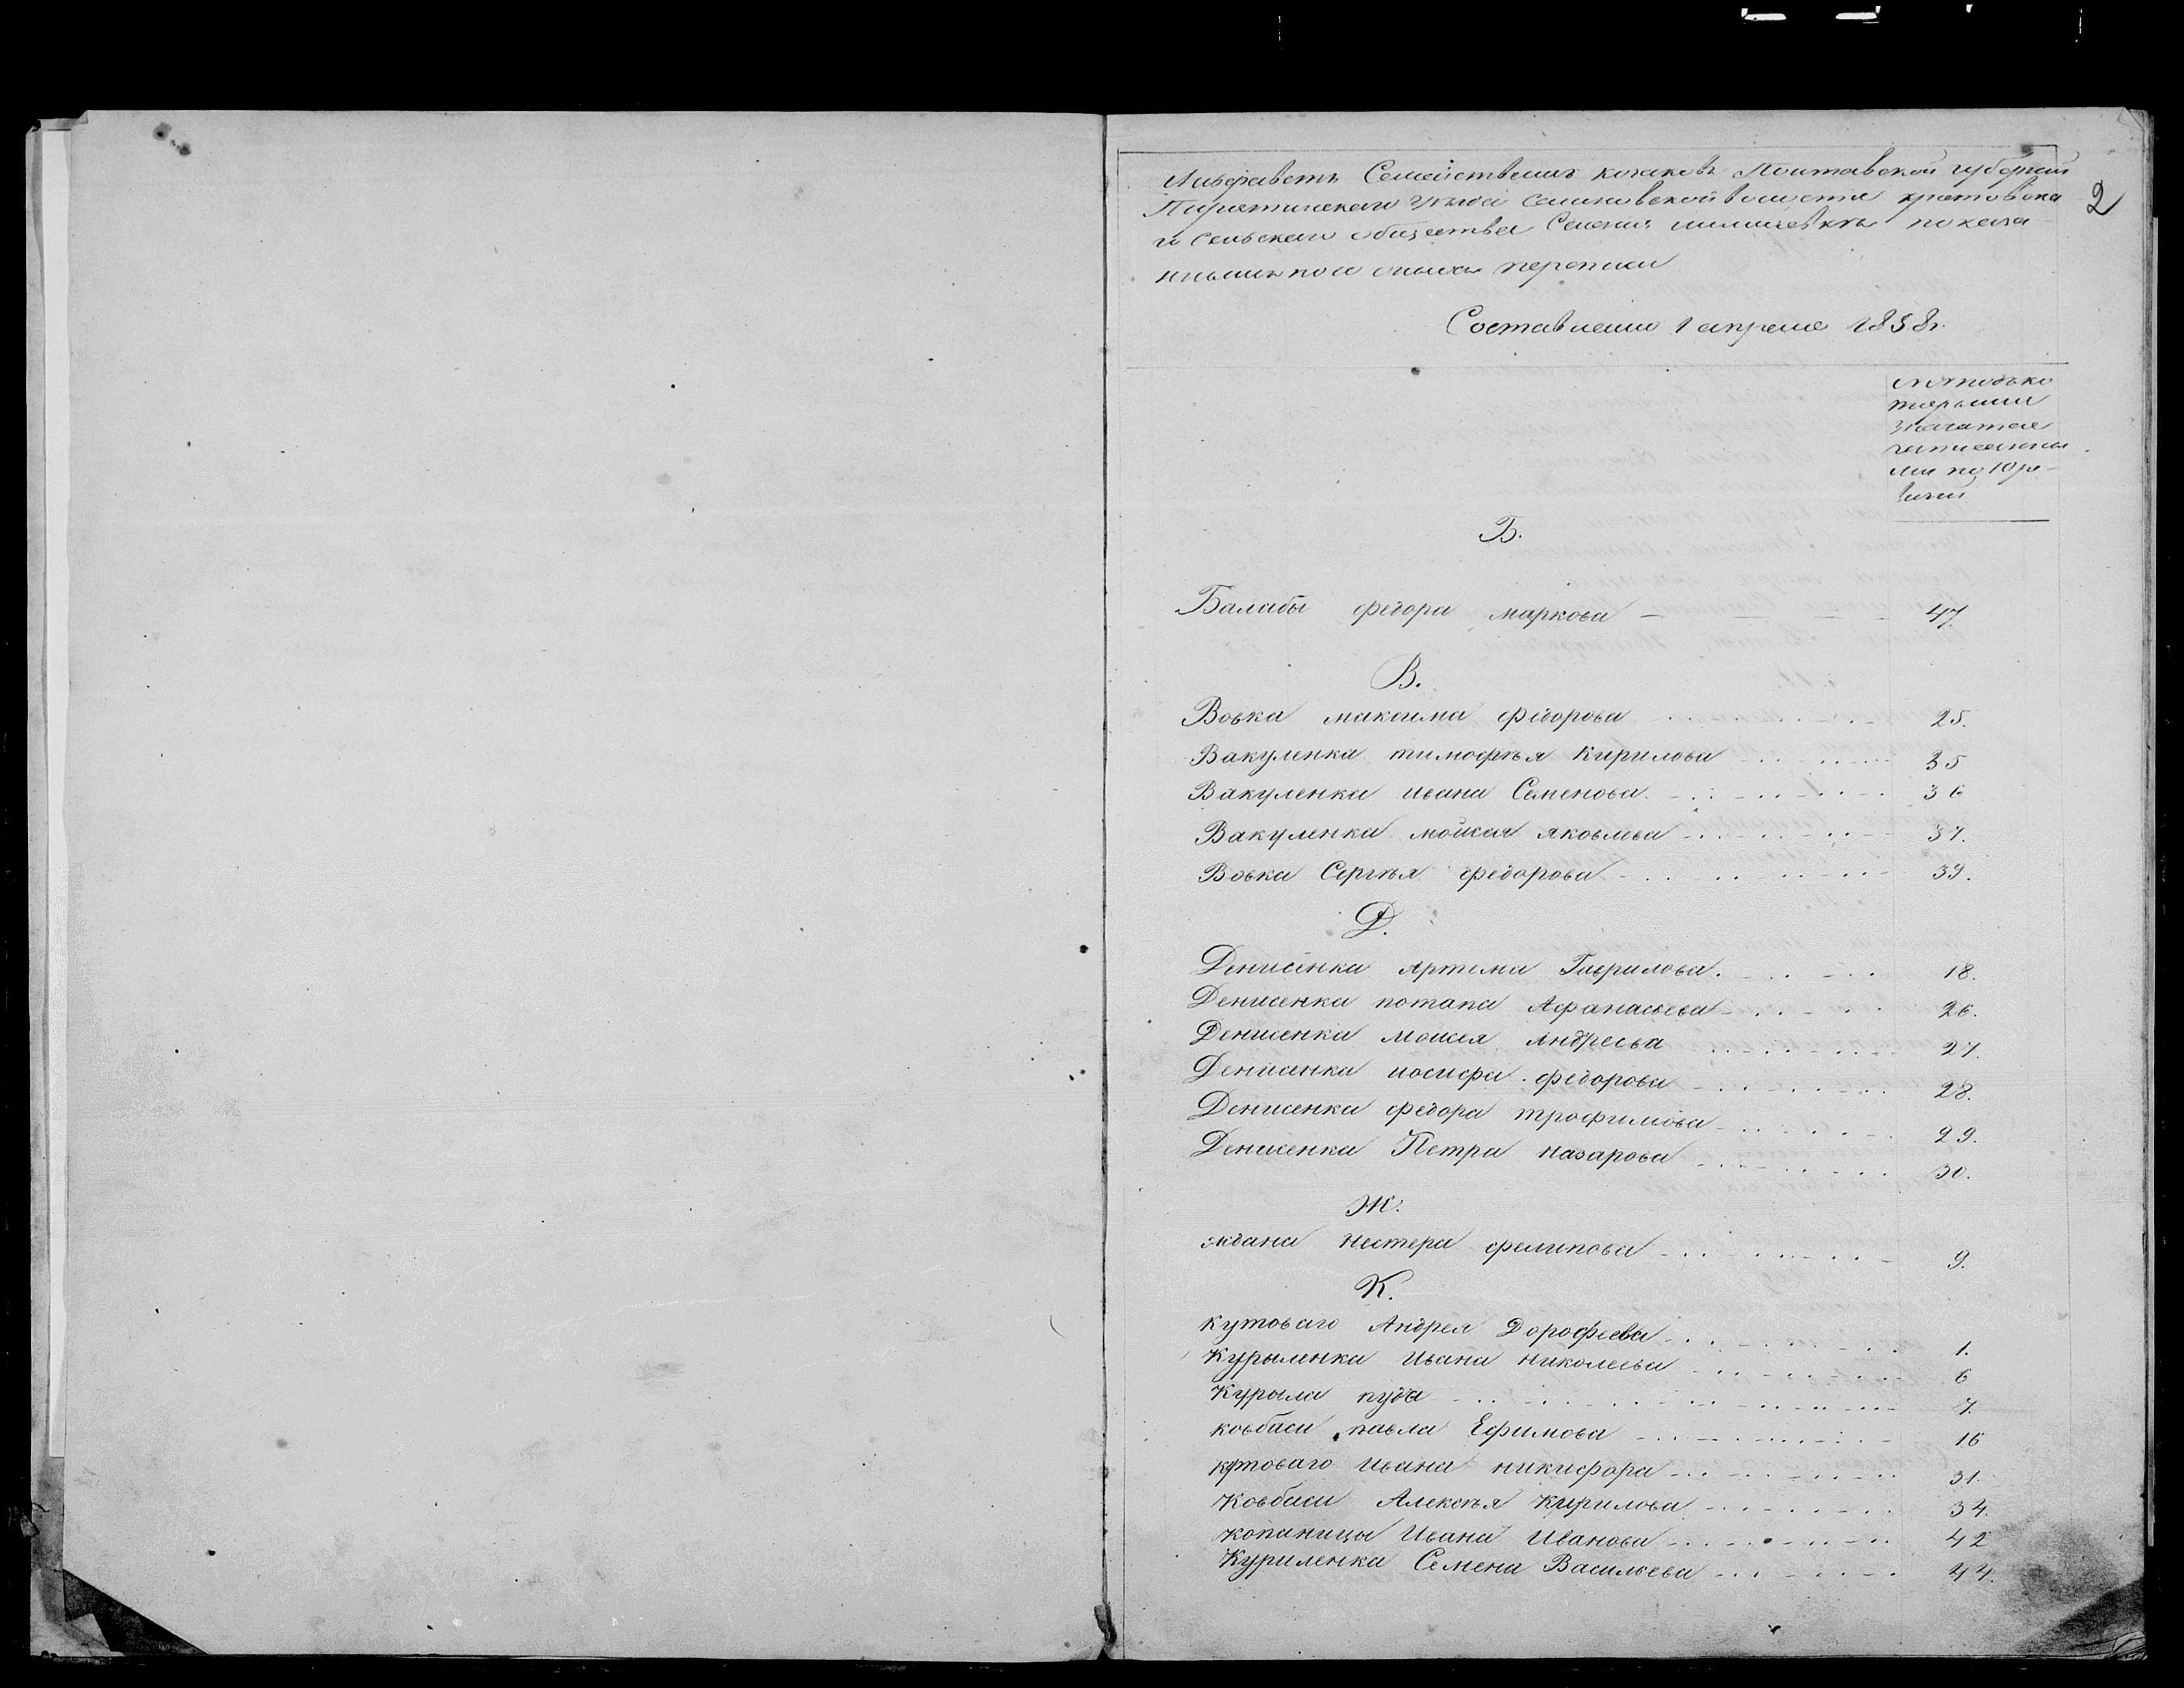 Алфаветъ Семействамъ козаковъ Полтавской губернии
Пирятинскаго уезда волости
2
и Сельскаго общества Селения
переписи
Составленъ 1 апреля 1858г.
№№ подъ ко
торыми
значатся
записанны
ми по 10 ре-
визии
Б.
Балабы федора маркова — — — 47.
В.
Вовка максима федорова 25.
Вакуленка тимофѣя Кирилова 35
Вакуленка ивана Семенова 36
Вакуленка мойсея яковлева 37.
Вовка Сергѣя федорова 39.
Д.
Денисенка артема Гаврилова. 18.
Денисенка потапа Афанасьева 26.
Денисенка моисея Андреева 27.
Денисенка иосифа федорова 28.
Денисенка федора трофимова 29.
Денисенка Петра назарова 30.
Ж.
ждана нестера фелипова 9.
К.
кутоваго Андрея Дорофеева 1.
Курыленка ивана николаева 6
Курыла пуда 7.
ковбаси павла Ефимова 16
кутоваго ивана никифора 31.
Ковбаси Алексѣя Кирилова 34.
копаницы Ивана Иванова 42
Куриленка Семена Васильева 44.